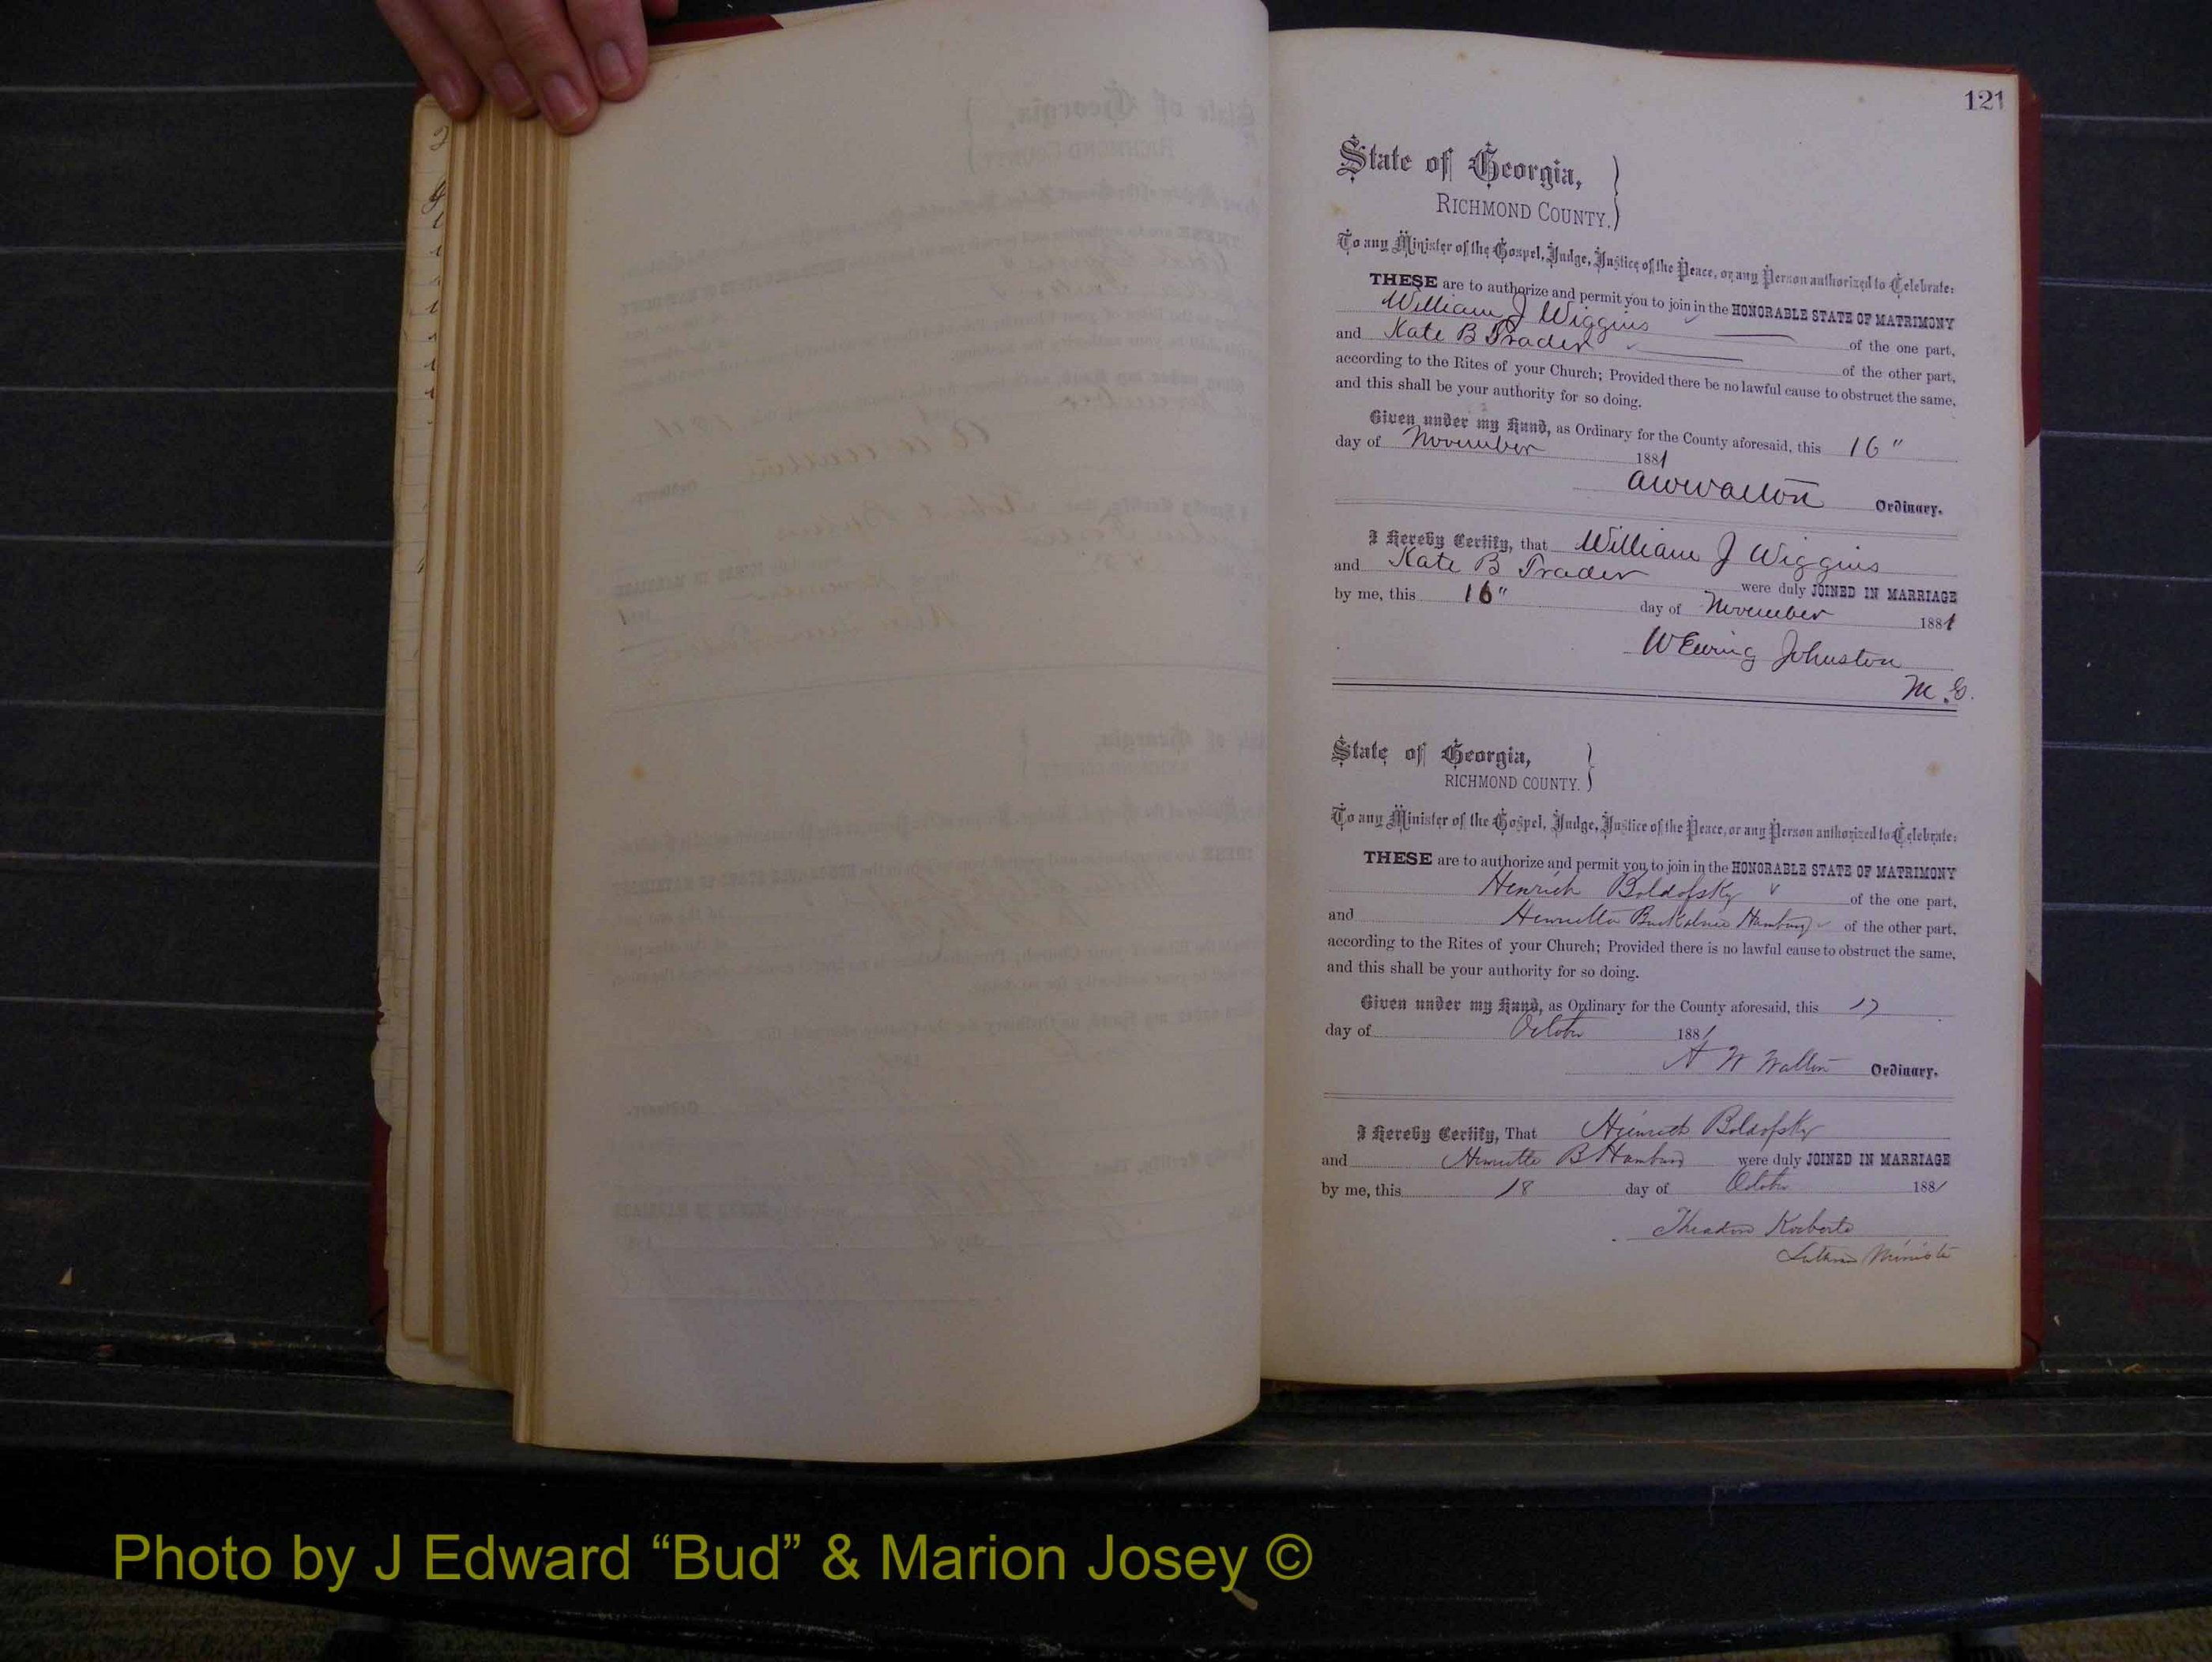 121
State of Georgia,
RICHMOND COUNTY.
To any Minister of the Gospel, Judge, Justice of the Peace, or any Person authorized to Celebrate:
THESE are to authorize and permit you to join in the HONORABLE STATE OF MATRIMONY
William J Wiggins of the one part,
and Kate B Prader of the other part,
according to the Rites of your Church; Provided there be no lawful cause to obstruct the same,
and this shall be your authority for so doing.
Given under my Hand, as Ordinary for the County aforesaid, this 16"
day of November 1881
A W Walton Ordinary.
I Hereby Certify, that William J Wiggins
and Kate B Trader were duly JOINED IN MARRIAGE
by me, this 16" day of November 1881
W Ewing Johnston
M.G.
State of Georgia,
RICHMOND COUNTY.
To any Minister of the Gospel, Judge, Justice of the Peace, or any Person authorized to Celebrate:
THESE are to authorize and permit you to join in the HONORABLE STATE OF MATRIMONY
Henrich Boldofsky of the one part,
and Henrietta Hamburg of the other part,
according to the Rites of your Church; Provided there is no lawful cause to obstruct the same,
and this shall be your authority for so doing.
Given under my Hand, as Ordinary for the County aforesaid, this 17
day of October 1881
A W Walton Ordinary.
I Hereby Certify, That Heinrich Boldofsky
and Henrietta B Hamburg were duly JOINED IN MARRIAGE
by me, this 18 day of October 1881
Lutheran Minister
Photo by J Edward “Bud” & Marion Josey ©